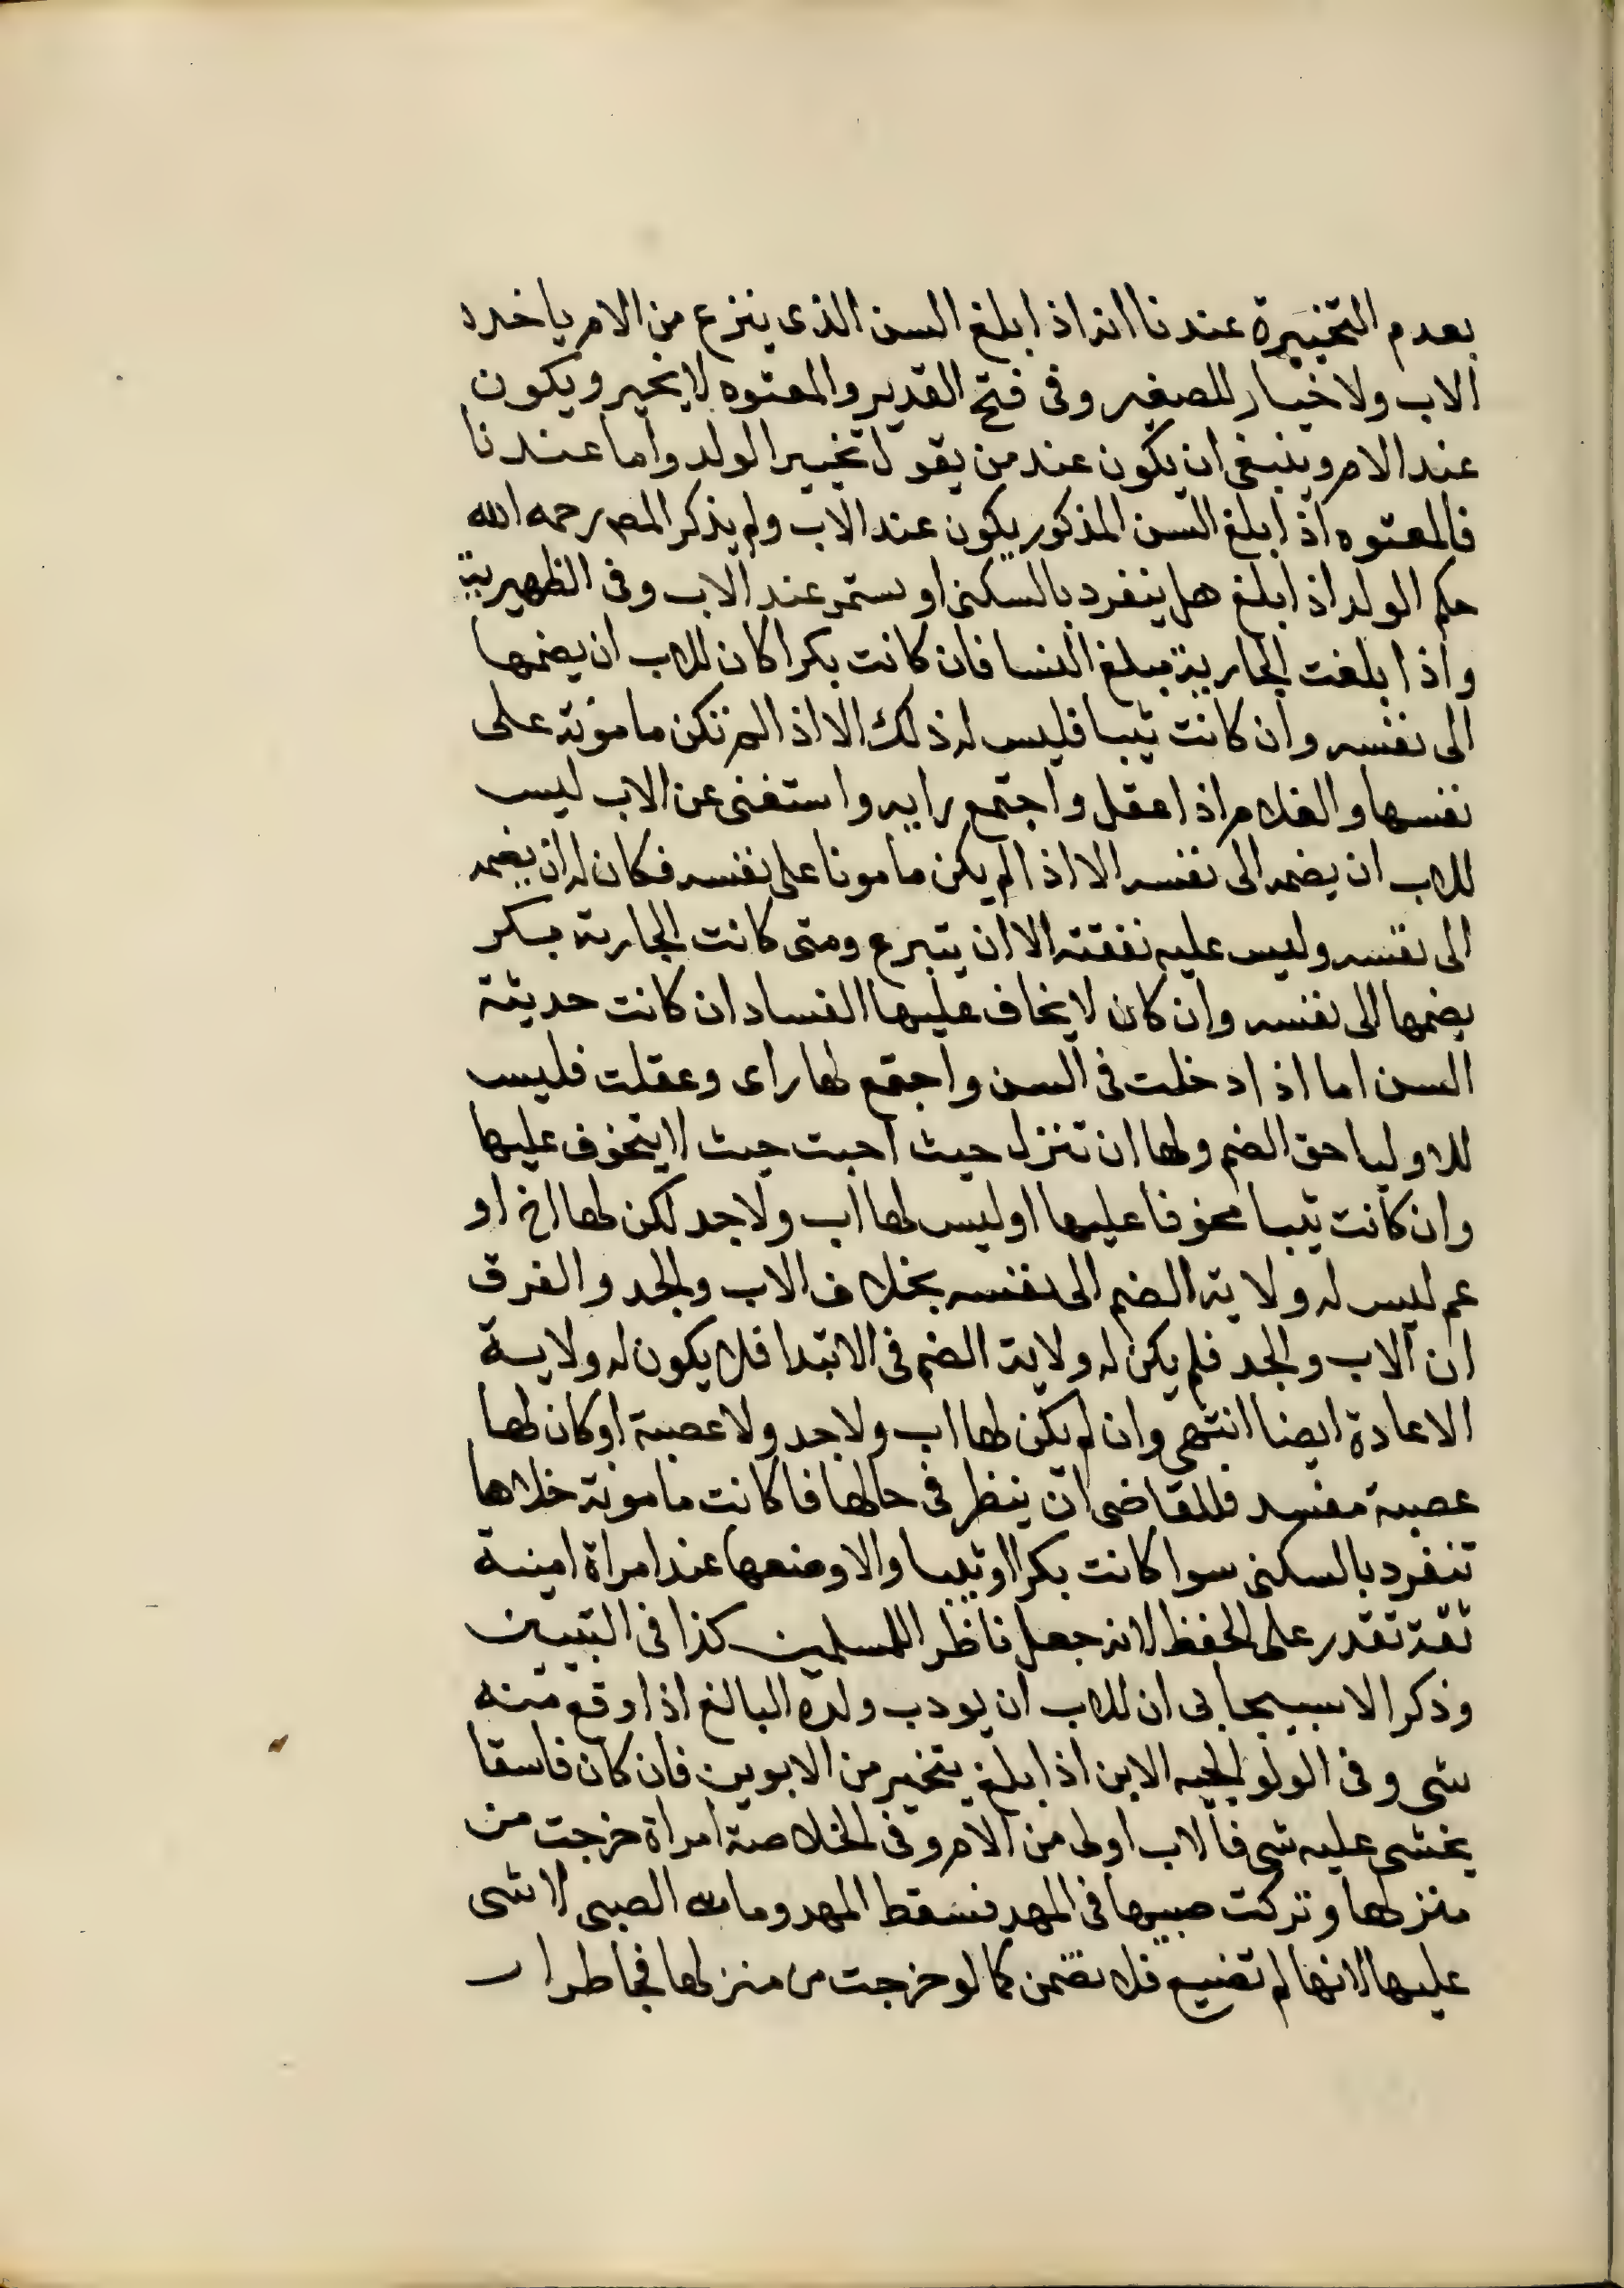 بعدم التخييرة عندنا انه اذا بلغ السن الذى ينزع من الام ياخده
الاب ولا خيار للصغير وفى فتح القدير والمعتوه لا يخير ويكون
عند الام وينبغى ان يكون عند من يقول تخيير الولد واما عندنا
فالمعتوه اذا بلغ السن المذكور يكون عند الاب ولم يذكر المص رحمه الله
حكم الولد اذا بلغ هل ينفرد بالسكنى او يستمر عند الاب وفى الظهيرية
واذا بلغت الجارية مبلغ النسا فان كانت بكرا كان للاب ان يضمها
الى نفسه وان كانت ثيبا فليس له ذلك الا اذا لم تكن مامونة على
نفسها والغلام اذا عقل واجتمع رايه واستغنى عن الاب ليس
للاب ان يضمه الى نفسه الا اذا لم يكن مامونا على نفسه فكان له ان يضمه
الى نفسه وليس عليه نفقته الا ان يتبرع ومتى كانت الجارية بكر
يضمها الى نفسه وان كان لا يخاف عليها الفساد ان كانت حديثة
السن اما اذا دخلت فى السن واجتمع لها راى وعقلت فليس
للاوليا حق الضم ولها ان تنزل حيث احبت حيث لا يتخوف عليها
وان كانت ثيبا مخوفا عليها او ليس لها اب ولا جد لكن لها اخ او
عم ليس له ولاية الضم الى نفسه بخلاف الاب والجد والفرق
ان الاب والجد فلم يكن له ولاية الضم فى الابتدا فلا يكون له ولاية
الاعادة ايضا انتهى وان لم يكن لها اب ولا جد ولا عصبة او كان لها
عصبة مفسد فللقاضى ان ينظر فى حالها فا كانت مامونة خلاها
تنفرد بالسكنى سوا كانت بكرا او ثيبا والا وضعها عند امراة امينة
ثقة تقدر على الحفظ لانه جعل ناظرا للمسلمين كذا فى التبيين
وذكر الاسبيجابى ان للاب ان يودب ولده البالغ اذا وقع منه
شى وفى الولوالجيه الابن اذا بلغ يتخير من الابوين فان كان فاسقا
يخشى عليه شى فالاب اولى من الام وفى الخلاصة امراة خرجت من
منزلها وتركت صبيها فى المهد فسقط المهد ومات الصبى لا شى
عليها لانها لم تضيع فلا تضمن كما لو خرجت من منزلها فجا طرار